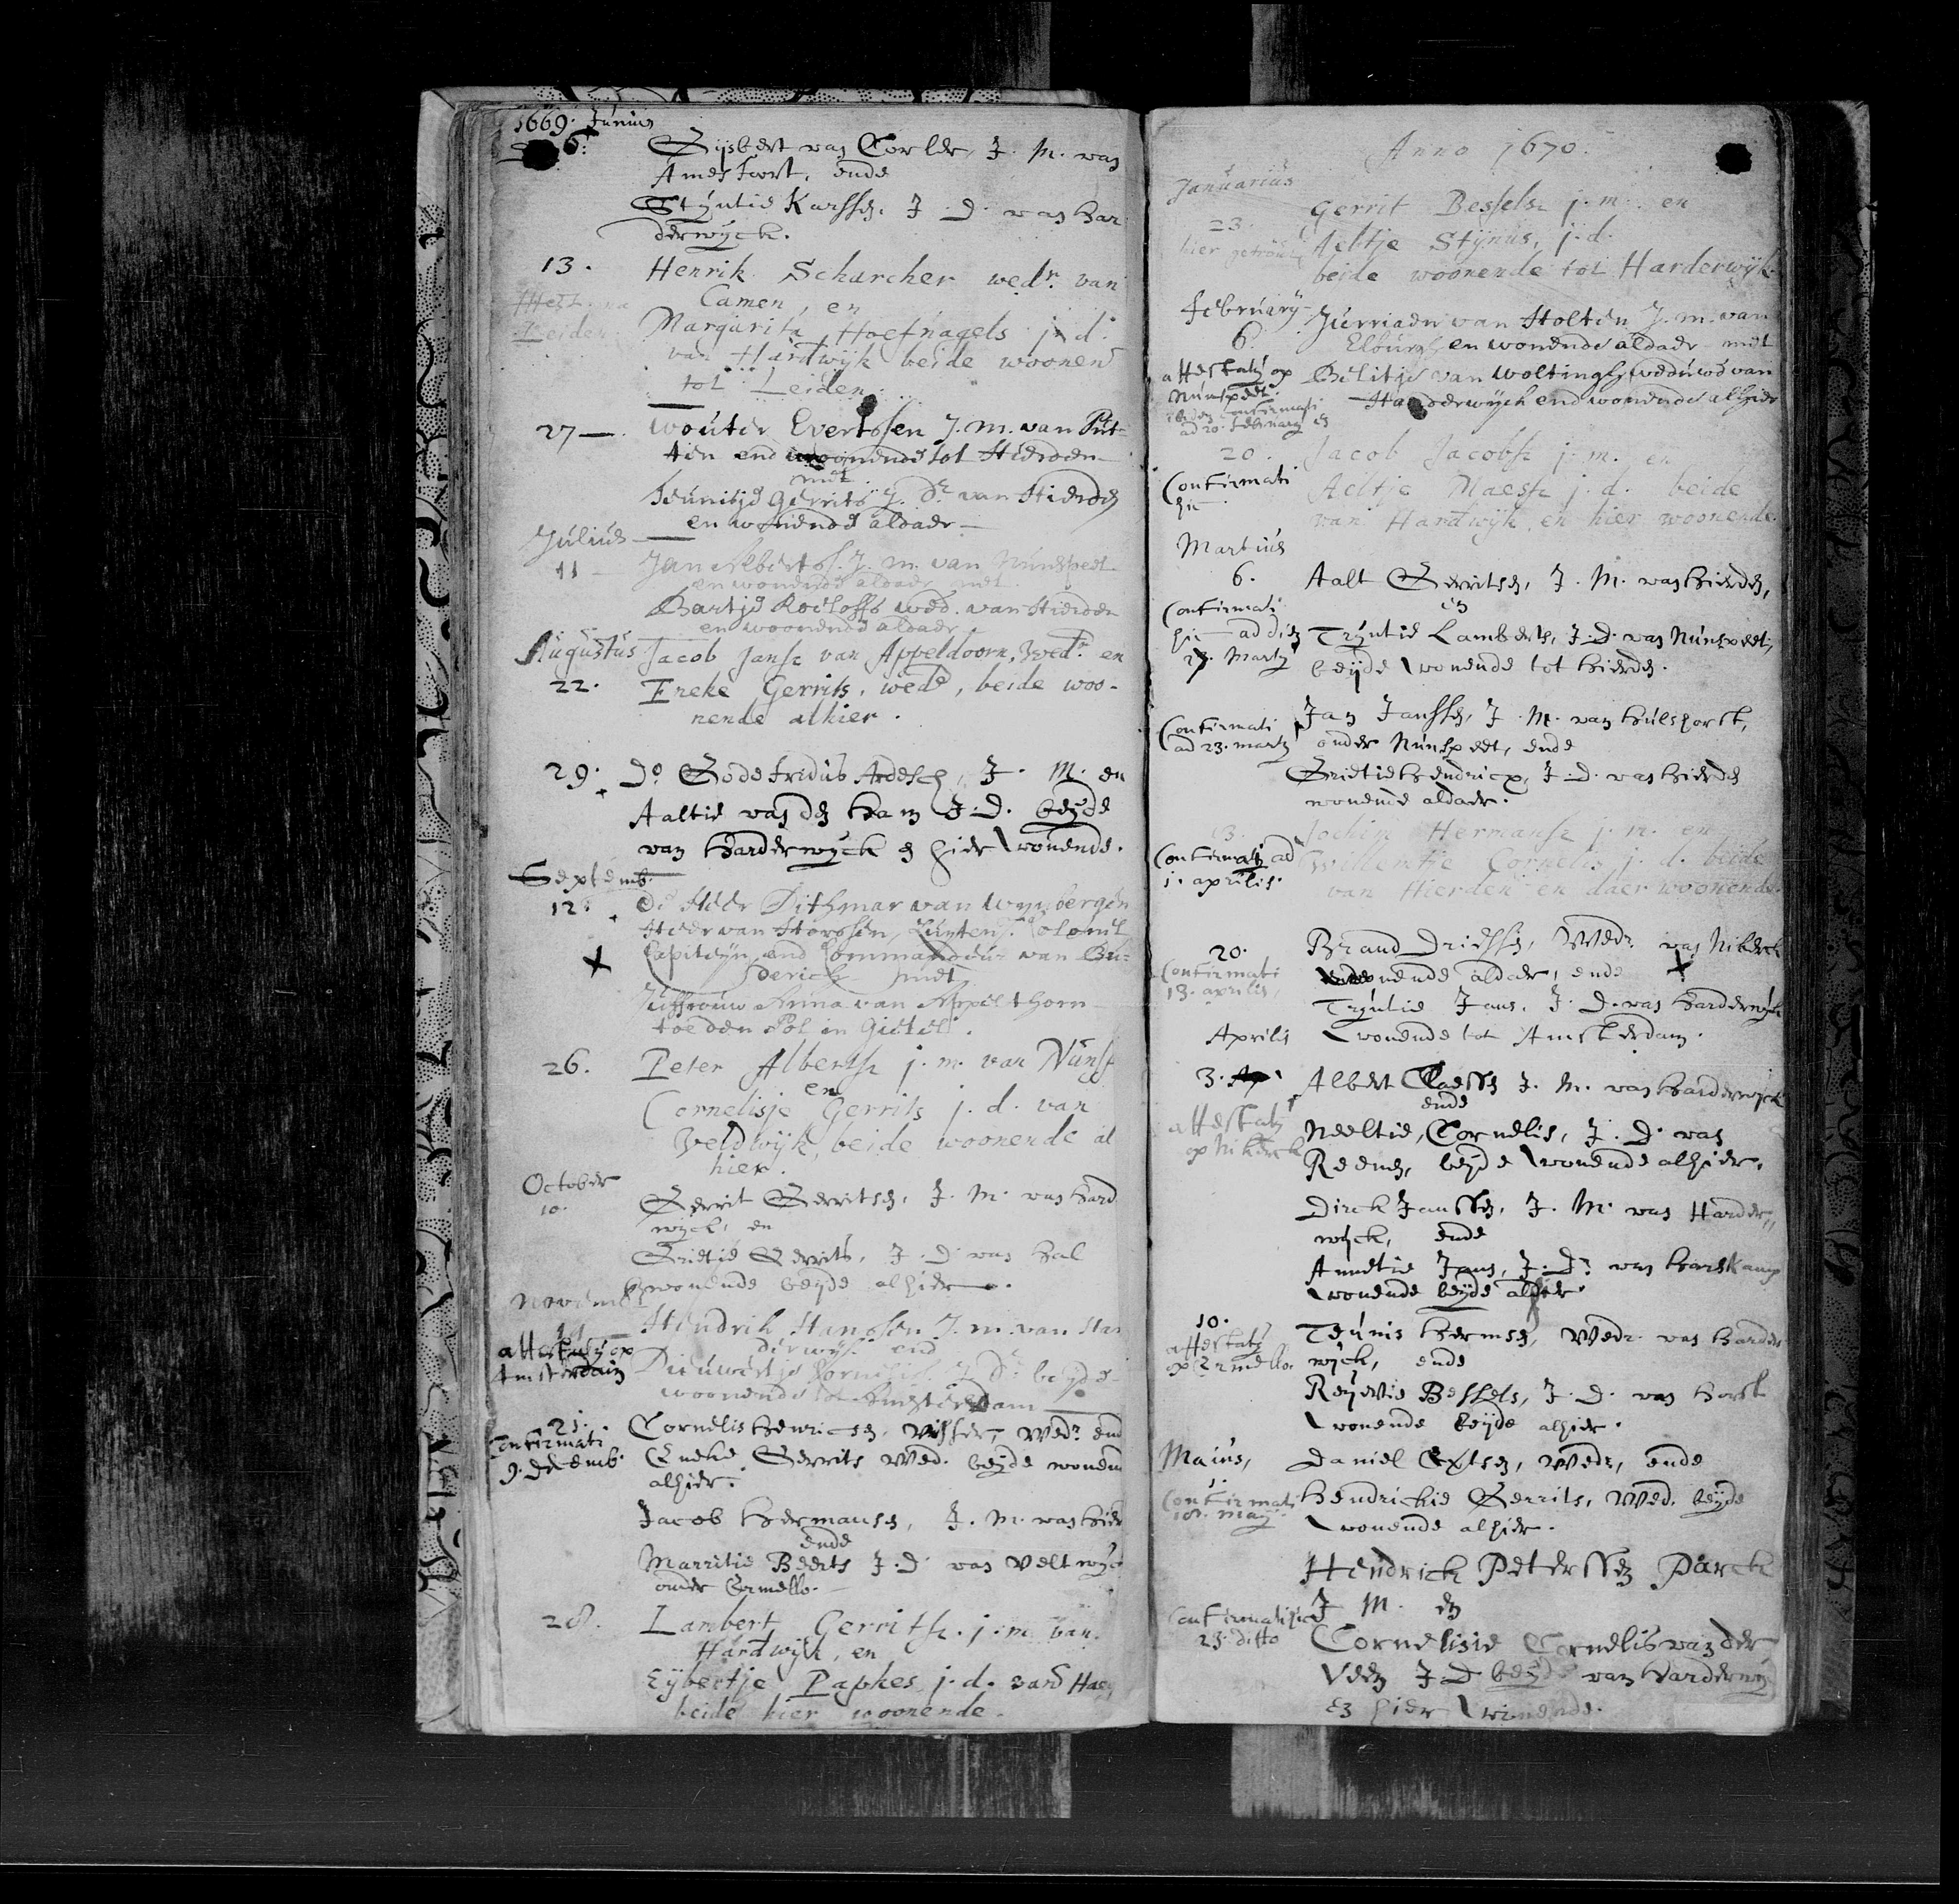 1669. Junius
6. Gijsbert van Corler, J. M. van
Amesfoort, ende
Stijntie Karssen, J. D. van Har
derwijck.
13. Henrik Scharcher wedr. van
Camen, en
Leiden Margarita Hoefnagels j. d.
van Hardwijk beide woonend
tot Leiden.
27 Wouter Evertssen J. m. van Put-
ten end woonende tot Hierden
met
Teunitje Gerrits J. Dr van Hierden
en wonende aldaer
Julius
11 Jan Albertss. J. m. van Nunspeet
en wonende aldaer met
Bartje Roeloffs wed. van Hierden
en woonende aldaer
Augustus Jacob Jansz van Appeldoorn, Wedr en
22. Eneke Gerrits, wede, beide woo-
nende alhier.
29. Do Godefridus Ardesch, J. M. en
Aaltie van den Ham J. D. beyde
van Harderwyck en hier wonende.
Septemb.
12. De Heer Dithmar van Wynbergen
Heer van Horssen, Luyten. Colonel
Capiteyn end Commandeur van Bu-
derick met
Juffrouw Anna van Appelthorn
toe den Pol in Gietel.
26. Peter Albertsz j. m. van Nunsp
en
Cornelisje Gerrits j. d. van
Veldwijk, beide woonende al
hier.
October
10. Gerrit Gerritsen, J. M. van Hard
wyck, en
Grietie Gerrits, J. D. van Hal
wonende beyde alhier.
Novemb
Hendrik Hanssen J. m. van Har
derwyk end
attestatij op
Amsterdam Dieuwertje Cornelis J. Dr beyde
woonende tot Amsterdam
21. Cornelis Henricsen, Visser, Wedr. end
Confirmati
9. Decemb. Eneke Gerrits Wed. beyde wonen
alhier.
Jacob Hermansen, J. M. van Hier
ende
Marritie Beerts J. D. van Veltwyc
onder Ermello.
28. Lambert Gerritsz. j. m. van
Hardwijk, en
Eijbertje Papkes j. d. van Haer
beide hier woonende.
Anno 1670.
Januarius
23. Gerrit Besselsz j. m. en
hier getrout Aeltje Stijnus, j. d.
beide woonende tot Harderwijk
February
6. Jurriaen van Holten J. m. van
Elburgh en wonende aldaer met
attestatij op
Nunspeet. Belitje van Woltingh weduwe van
Harderwyck end wonende alhier
ad 20. February
20. Jacob Jacobsz j. m. en
Confirmati
hic Aeltje Maesz j. d. beide
van Hardwijk, en hier woonende.
Martius
6. Aalt Gerritsen, J. M. van Hierden,
en
Confirmati
hic ad diem
27. Martij Tryntie Lamberts, J. D. van Nunspeet,
beyde wonende tot Hierden.
Confirmati
ad 23. martij Jan Janssen, J. M. van Hulshorst,
onder Nunspeet, ende
Grietie Hendricx, J. D. van Hierden
wonende aldaer.
13. Jochim Hermansz j. m. en
Confirmati ad
1. aprilis. Willemtje Cornelis j. d. beide
van Hierden en daer woonende.
20. Brand Driessen, Wedr. van Nikerck
Confirmati
13. aprilis, wonende aldaer, ende
Tryntie Jans, J. D. van Harderwyck
wonende tot Amsterdam.
Aprilis
3. Albert Claessen J. M. van Harderwijck
ende
attestatij
op Nikerck Neeltie Cornelis, J. D. van
Reenen, beyde wonende alhier.
Dirck Janssen, J. M. van Harder,,
wyck, ende
Annetie Jans, J. D. van Harskamp
wonende beyde alhier.
10. Teunis Hermsen, Wedr. van Harder
attestatij
op Ermello. wyck, ende
Reyntie Bessels, J. D. van Horst
wonende beyde alhier.
Maius, Daniel Extsen, Wedr, ende
Confirmati
18. may Hendrickie Gerrits, Wed. beyde
wonende alhier.
Hendrick Peterssen Parck
J. M. en
Confirmati hic
23. ditto Cornelisie Cornelis van der
Veen J. D. beyde van Harderwy
en hier wonende.